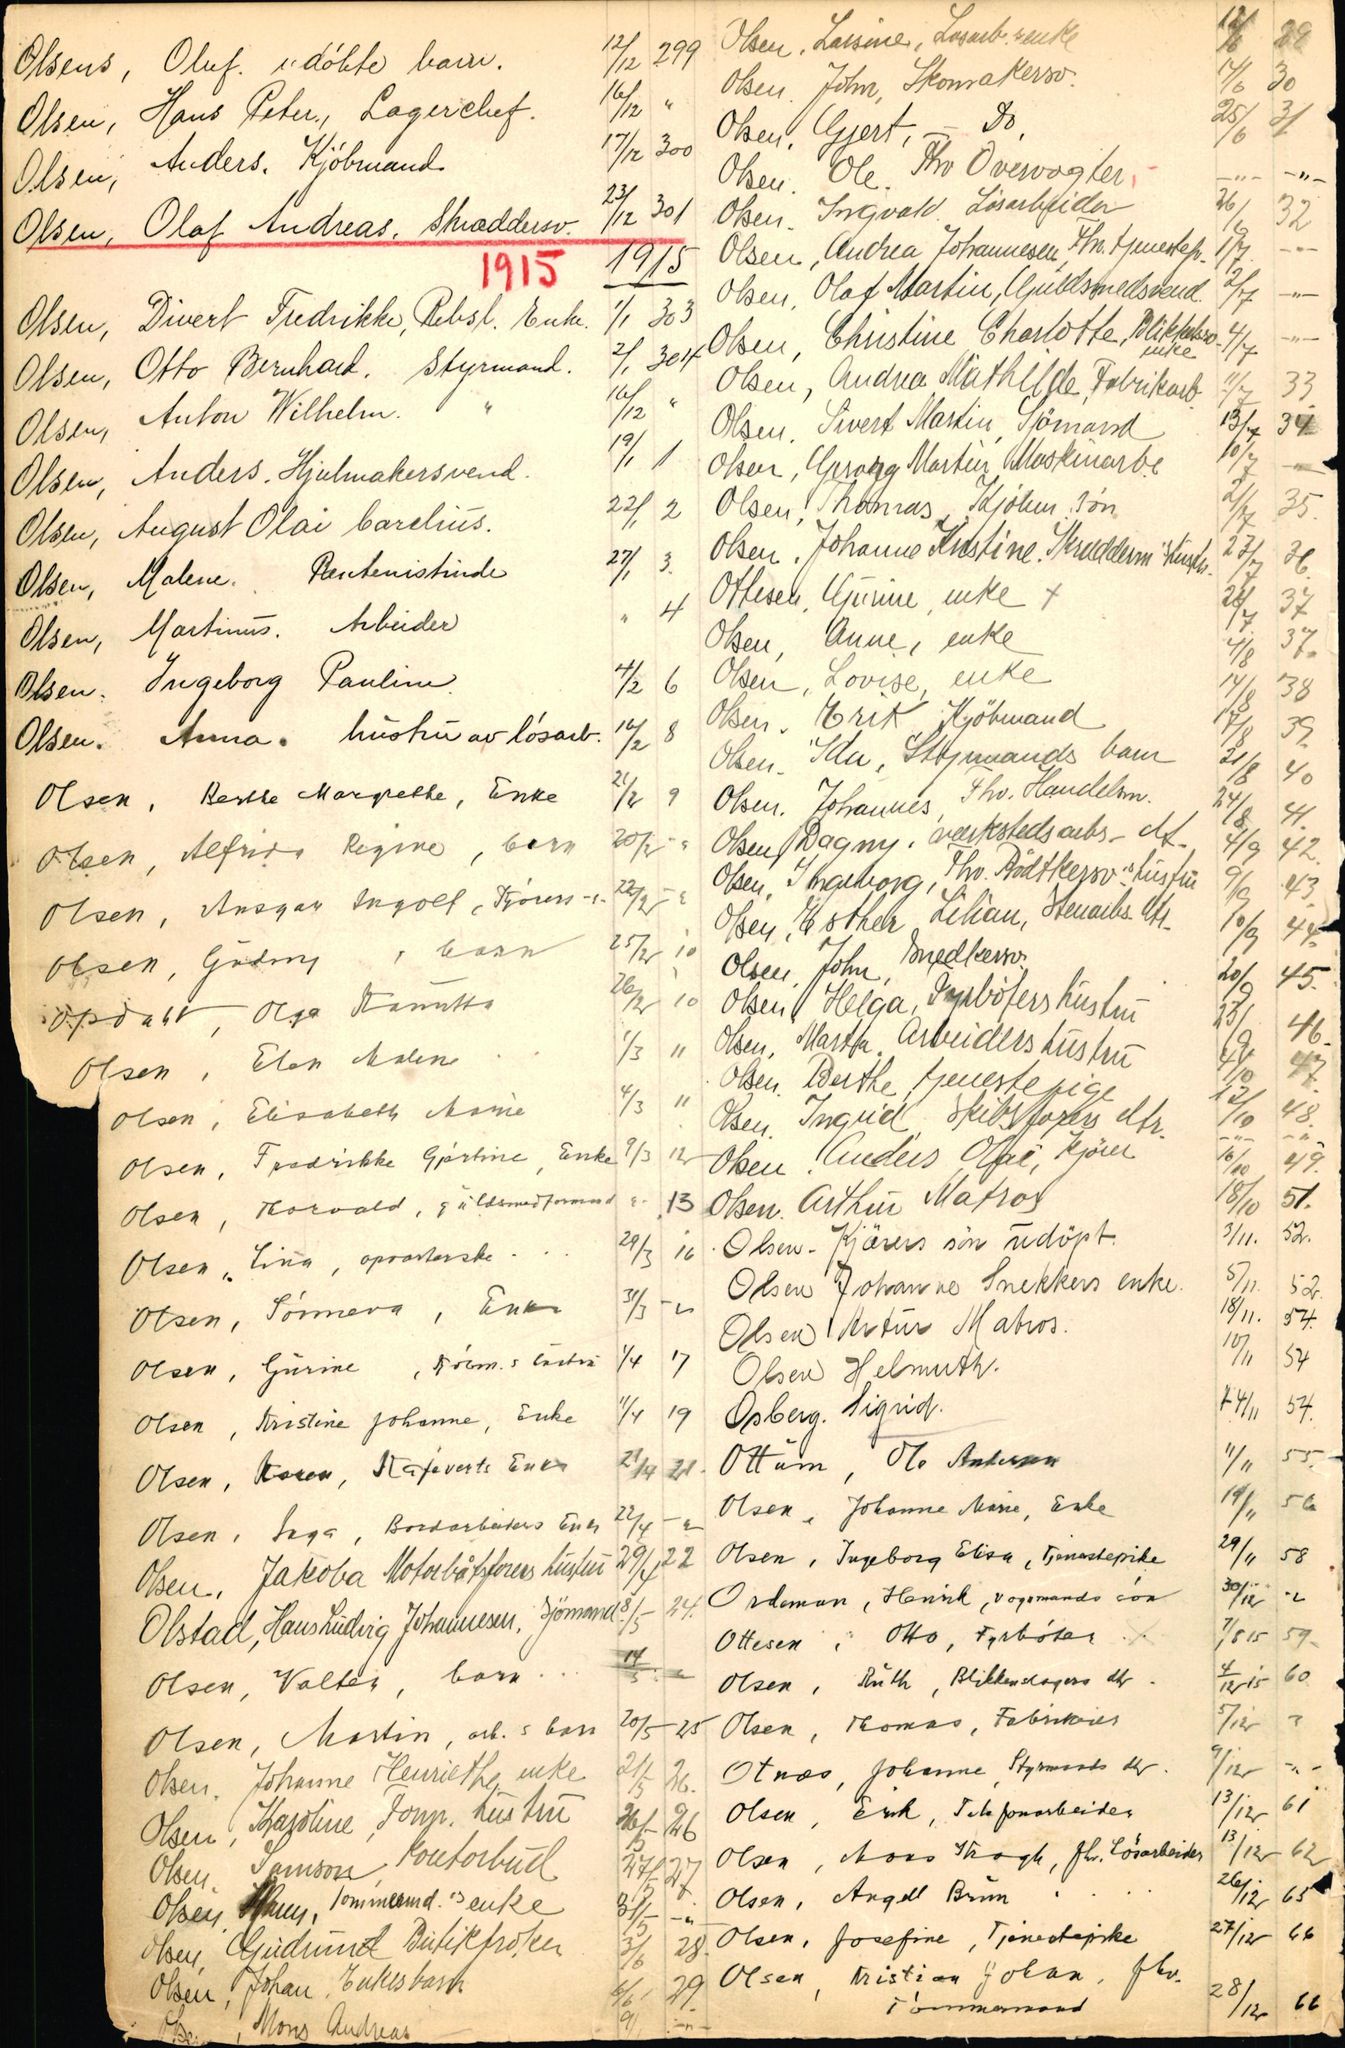 Olsens, Oluf. udöbte barn. 12/12 299
Olsen, Hans Peter., Lagerchef. 16/12 "
Olsen, Anders. Kjöbmand 17/12 300
Olsen, Olaf Andreas. Skræddersv. 23/12 301
1915 1915
Olsen, Divert Fredrikke, Rebsl. Enke. 1/1 303
Olsen, Otto Bernhard. Styrmand. 2/1 304
Olsen, Anton Wilhelm. " 16/12 "
Olsen, Anders. Hjulmakersvend. 19/1 1
Olsen, August Olai Carelius. 22/1 2
Olsen, Malene. Rentenistinde 27/1 3.
Olsen, Martinus. Arbeider " 4
Olsen. Ingeborg Pauline. 4/2 6
Olsen. Anna. hustru av lösarb. 16/2 8
Olsen, Berthe Margrethe, Enke 21/2 9
Olsen, Alfrida Regine, barn 20/2 - "
Olsen, Ansgar Ingolf, Kjörers s. 22/2 - "
Olsen, Gudny, barn 25/2 10
Opdahl, Olga 26/2 10
Olsen, Elen Malene 1/3 11
Olsen, Elisabeth Marie 4/3 11
Olsen, Fredrikke Gjertine, Enke 9/3 12
Olsen, Thorvald, guldsmedformand " 13
Olsen, Lina, opvarterske 29/3 16
Olsen, Sönneva, Enke 31/3 - "
Olsen, Gurine, hustru 1/4 17
Olsen, Kristine Johanne, Enke 11/4 19
Olsen, Karen, Enke 21/4 21.
Olsen, Inga, Bordarbeiders Enke 22/4 - "
Olsen, Jakoba Motorbåtsförers hustru 29/4 22
Olstad, Hans Ludvig Johannesen, Sjömand 8/5 24.
Olsen, Valter, barn 14/5 - "
Olsen, Martin, arb. s barn 20/5 25
Olsen. Johanne Henriethe enke 21/5 26.
Olsen, Karoline, hustru 26/5 26
Olsen. Samson, Kontorbud 27/5 27
Olsen, Tömmermd.s enke 31/5 - " -
Olsen, Gudrund Butikfröken 3/6 28.
Olsen, Johan. Enkes barn 6/6 29.
Mons Andreas - " -
Olsen, Larsine, Lösarb. enke 12/6 29
Olsen. John, Skomakersv. 14/6 30
Olsen, Gjert, - Do, 25/6 31
Olsen. Ole. Fhv Overvogter. - " - - " -
Olsen. Ingvald. Lösarbeider 26/6 32
Olsen, Andrea Johannesen, Fhv. tjenestep. 1/7. - " -
Olsen, Olaf Martin, Guldsmedsvend. 2/7 - " -
Olsen, Christine Charlotte, enke 4/7 - " -
Olsen, Andrea Mathilde, Fabrikarb. 11/7 33
Olsen. Sivert Martin, Sjömand 13/7 34
Olsen, Georg Martin, Maskinarbe 10/7 - " -
Olsen, Thomas, Kjöbm. sön 21/7 35.
Olsen, Johanne Kristine. Skredderm.s hustr. 27/7 36.
Ottesen, Gurine, enke + 28/7 37
Olsen, Anne, enke 4/8 37.
Olsen, Lovise, enke 14/8 38
Olsen. Erik Kjöbmand 17/8 39.
Olsen. Ida, Styrmands barn 21/8 40
Olsen. Johannes, Fhv. Handelsm. 24/8 41.
Olsen, Dagny, verkstedsarbs. dt. 4/9 42.
Olsen, Ingeborg, Fhv. Bödtkersv.s hustru 9/9 43
Olsen, Esther Lilian, Stenarbs. dtr. 10/9 44.
Olsen, John, Snedkersv. 20/9 45.
Olsen, Helga, Fyrböters hustru 25/9 46.
Olsen, Martha. Arbeiders hustru 4/10 47.
Olsen. Berthe, tjenestepige 12/10 48.
Olsen. Ingrid Skibsförers dtr. - " - - " -
Olsen. Anders Olai, Kjörer 16/10 49.
Olsen. Arthur Matros 18/10 51.
Olsen - Kjörers sön udöpt. 3/11. 52.
Olsen Johanne Snekkers enke. 5/11. 52.
Olsen Artur Matros. 18/11. 54.
Olsen Helmuth. 10/11 54
Osberg. Sigrid. 14/11 54.
Ottum, Ole Andersen 11/11 55.
Olsen, Johanne Marie, Enke 19/11 56
Olsen, Ingeborg Elisa, Tjenestepike 29/11 58
Ordeman, Henrik, vognmands sön 30/12 - "
Ottesen, Otto, Fyrböter 7/8 15 59
Olsen, Ruth, Blikkenslagers dtr. 4/12 15 60
Olsen, Thomas, Fabrikeier 5/12 "
Otnæs, Johanne, Styrmands dtr. 9/12 - " -
Olsen, Erik, Telefonarbeider 13/12 61
Olsen, Mons Krogh, fhv. Lösarbeider 13/12 62
Olsen, Angell Brun 26/12 65
Olsen, Josefine, Tjenestepike 27/12 66
Olsen, Kristian Johan, fhv.
Tömmermand 28/12 66